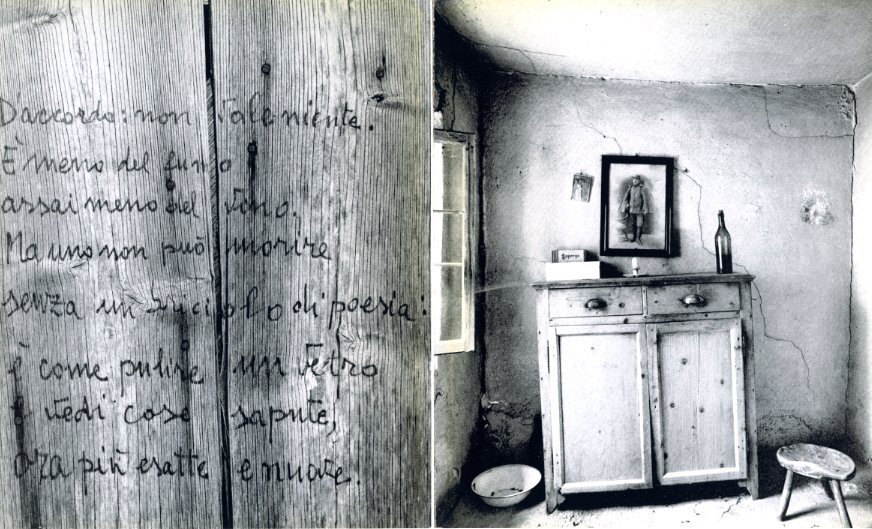 D'accordo: non vale niente.
È meno del fumo
assai meno del vino.
Ma uno non può morire
senza un briciolo di poesia:
è come pulire un vetro
e vedi cose sapute,
ora più esatte e nuove.